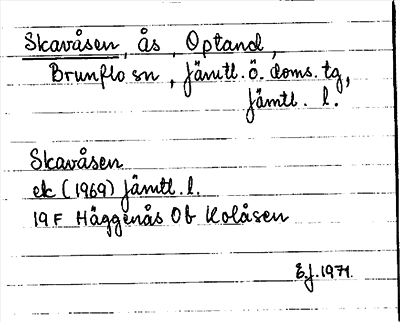 Skavåsen, ås, Optand,
Brunflo sn, Jämtl. ö. doms. tg,
Jämtl. l.
Skavåsen
ek (1969) Jämtl. l.
19 F Häggenås 0b Kolåsen
E.J. 1971.